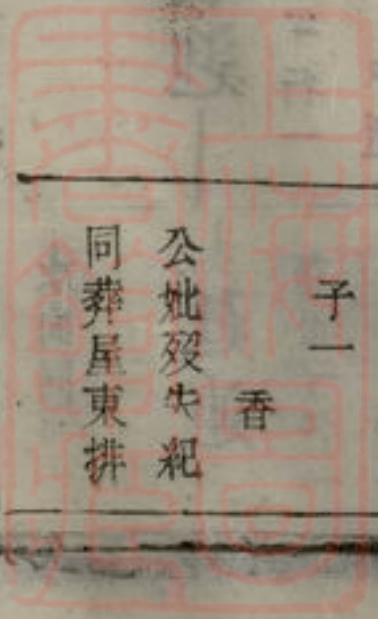 子一
香
公妣殁失紀
同葬屋東排